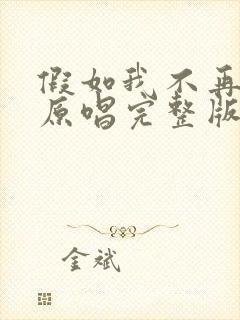 假如我不再
原唱完整版
金斌